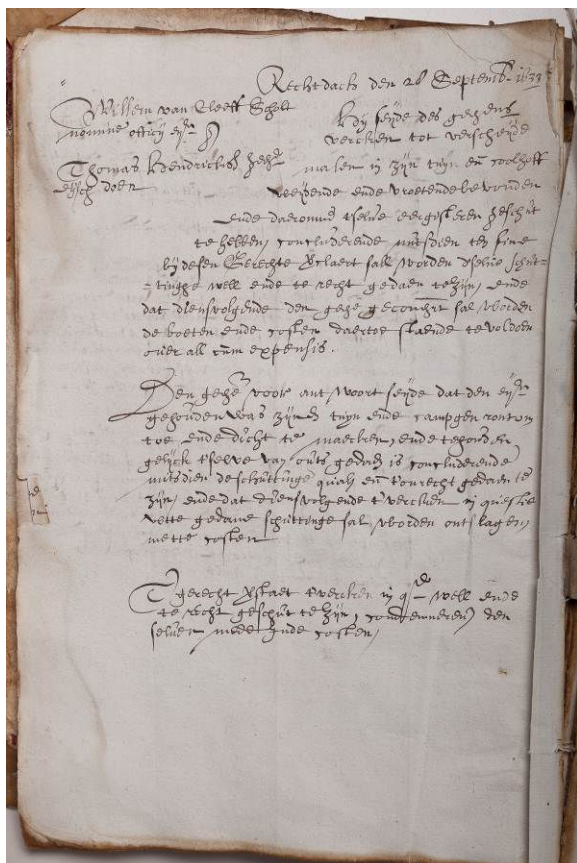 Rechtdach den 28 Septemb. 1633
Willem van Cleeff Scholt
nomine officij eyr
Thomas Hendricksz gehr
eysch doen
Hy seyde des gehens
vercken tot verscheyde
malen in zyn tuyn en coolhoff
weydende ende vroetende bevonden
ende daeromme tselve eergisteren geschut
te hebben, concluderende mitsdien ten fine
by desen Gerechte verclaert sall worden tselve schut-
tinghe well ende te recht gedaen te zyn, ende
dat dienvolgende den gehe gecondt sal worden
de boeten ende costen daertoe staende te voldoen
over all cum expensis.
Den gehe voor antwoort seyde dat den eyr
gehouden was zynen tuyn ende campgen rontom
toe ende dicht te maecken, ende te houden
gelyck tselve van outs gedaen is concluderende
mitsdien de schuttinge qualyck en tonrecht gedaen te
zyn, ende dat dienvolgende tvercken in questie
wette gedaene schuttinge sal worden ontslagen,
mette costen
Tgerecht verclaert tvercken in qe well ende
te recht geschut te zyn, condemneren den
selven mede inde costen,